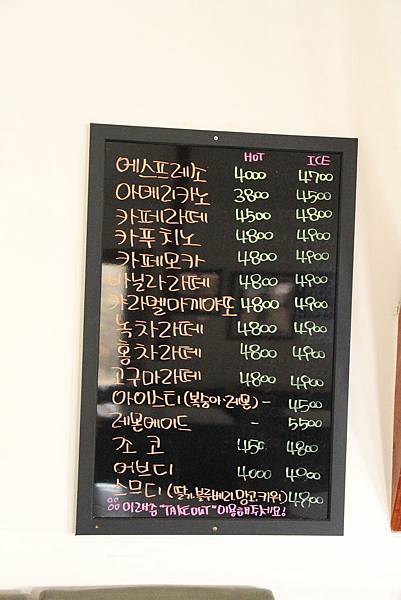 HOT ICE
에스프레소 4000 4700
아메리카노 3800 4500
카페라떼 4500 4800
카푸치노 4800 4900
카페모카 4800 4900
바닐라라떼 4800 4900
캬라멜마끼아또 4800 4900
녹차라떼 4800 4900
홍차라떼 4800 4900
고구마라떼 4800 4900
아이스티(복숭아·레몬) - 4500
레몬에이드 - 5500
초코 450 4800
허브티 4000 4900
스무디 (딸기.블루베리.망고.키위) 4900
"TAKE OUT" 이용해주세요!